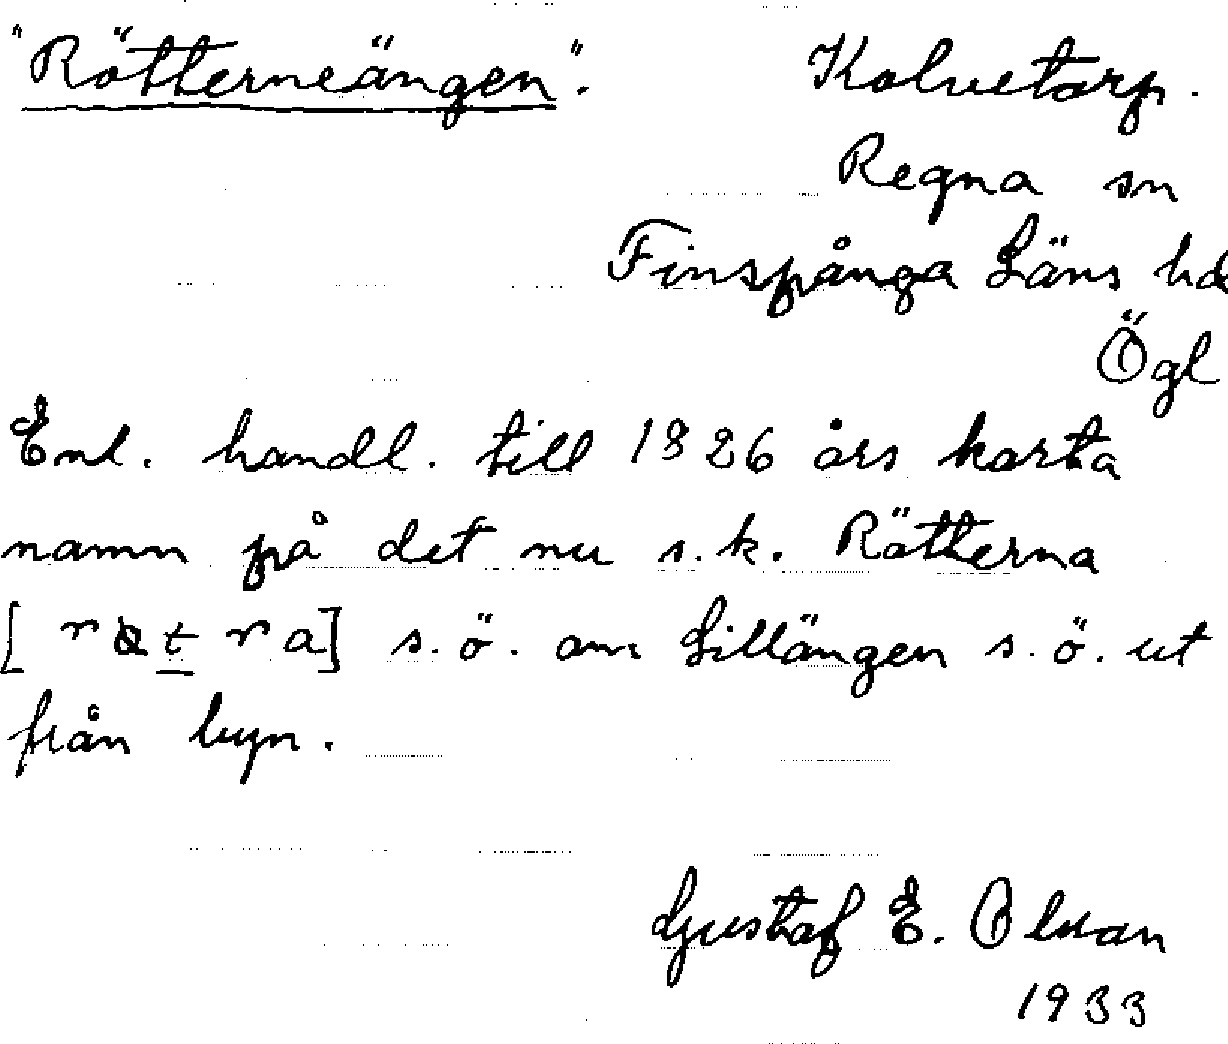 "Rötterneängen". Kolvetorp.
Regna sn
Finspånga Läns hd
Ögl
Enl. handl. till 1826 års karta
namn på det nu s.k. Rötterna
[ ra] s.ö. om Lillängen s.ö. ut
från byn.
Gustaf E. Olsson
1933